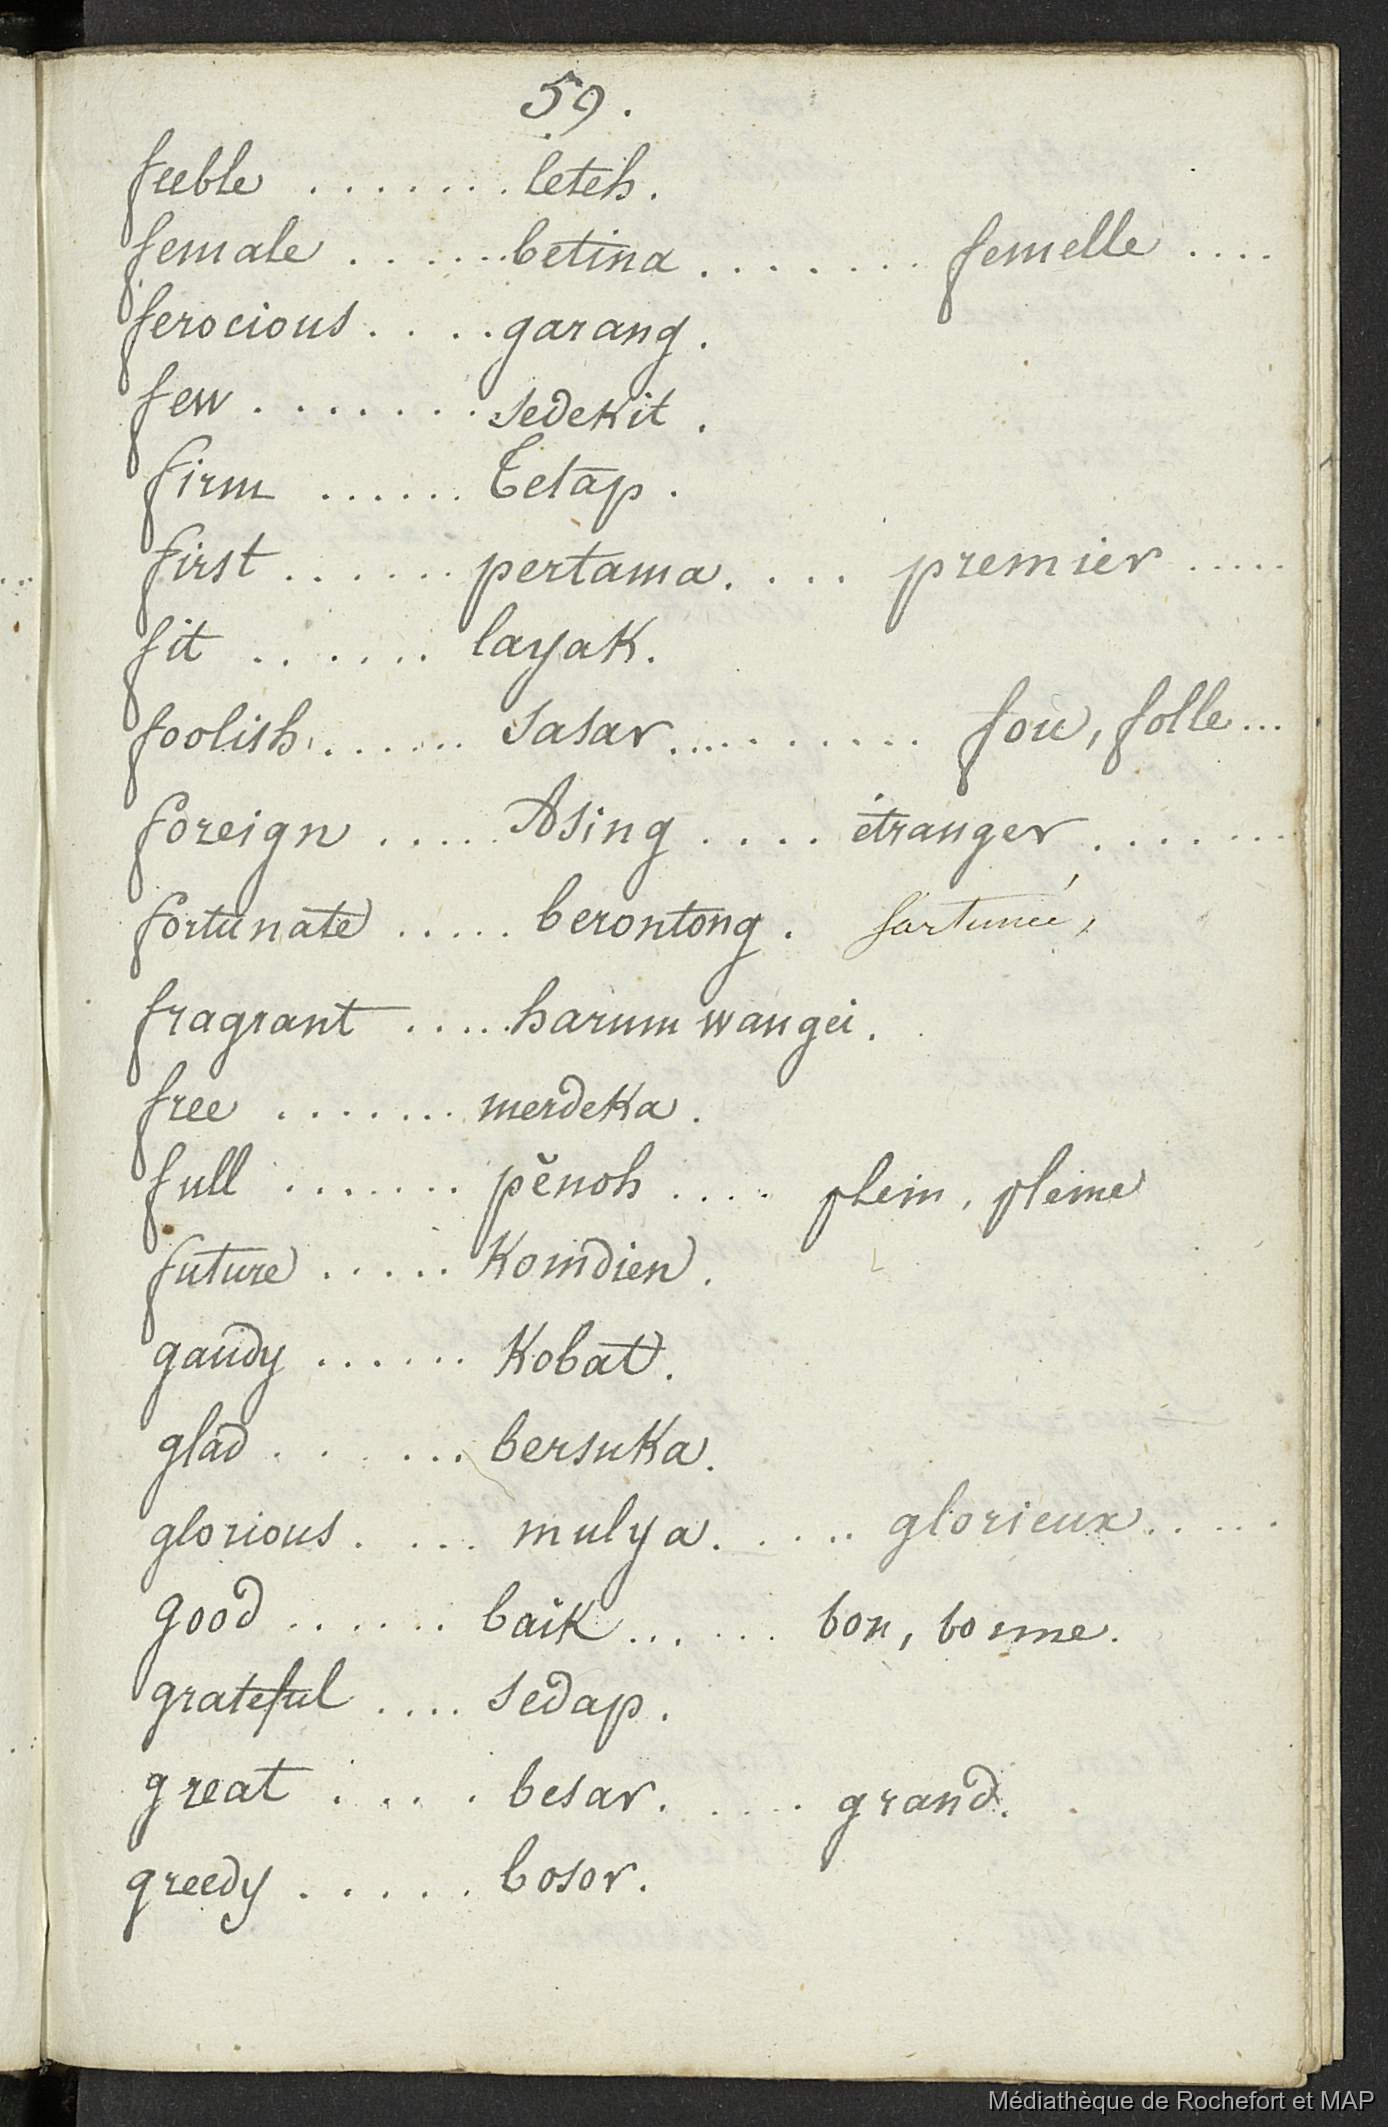 59.
feeble ....... leteh.
female ...... betina ....... femelle ....
ferocious .... garang.
few ....... sedekit.
firm ...... Tetap.
first ...... pertama. ... premier .....
fit ...... layak.
foolish ...... sasar .......... fou, folle ...
foreign ..... Asing .... étranger .......
fortunate ..... berontong. fortunée,
fragrant ..... harum wangei.
free ....... merdeka.
full ....... pĕnoh .... plein, pleine
future ..... Komdien.
gaudy ...... Kobat.
glad ...... bersuka.
glorious .... mulya. .... glorieux .....
good ...... baïk ...... bon, bonne.
grateful .... sedap.
great .... besar. .... grand.
greedy ..... bosor.
Médiathèque de Rochefort et MAP